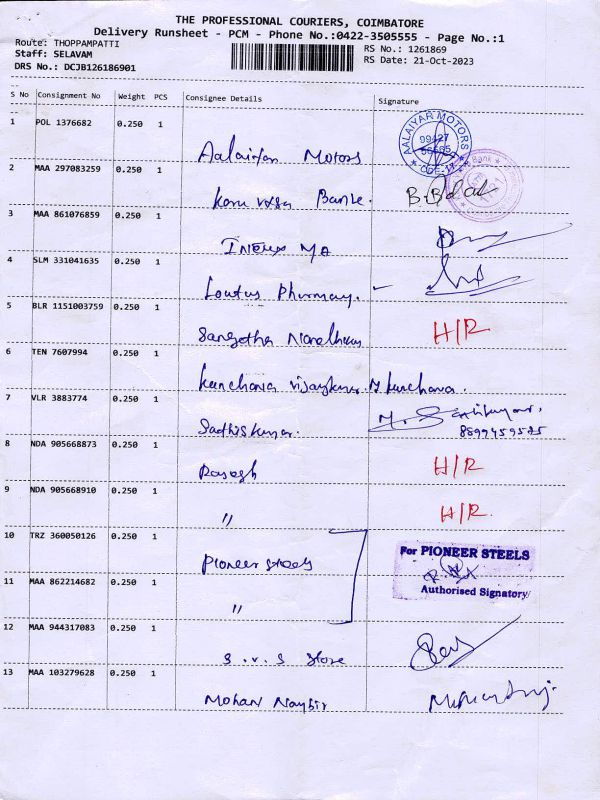 THE PROFESSIONAL COURIERS, COIMBATORE
Delivery Runsheet - PCM - Phone No.:0422-3505555 - Page No.:1
Route: THOPPAMPATTI
RS No.: 1261869
Staff: SELAVAM
RS Date: 21-Oct-2023
DRS No.: DCJB126186901
S No Consignment No Weight PCS Consignee Details Signature
1 POL 1376682 0.250 1
AALAIYAR MOTORS
Aalaiyan Motors
2 MAA 297083259 0.250 1
Bank
Karu vysa Banke.
3 MAA 861076859 0.250 1
4 SLM 331041635 0.250 1
Loutus Phurmacy.
5 BLR 1151003759 0.250 1
Sangetha H/R
6 TEN 7607994 0.250 1
Kanchana Vijaykumar
7 VLR 3883774 0.250 1
Sadhiskumar.
8 NDA 905668873 0.250 1
H/R
9 NDA 905668910 0.250 1
" H/R.
10 TRZ 360050126 0.250 1
Pioneer steels
For PIONEER STEELS
Authorised Signatory
11 MAA 862214682 0.250 1
"
12 MAA 944317083 0.250 1
S.V.S Store
13 MAA 103279628 0.250 1
Mohan